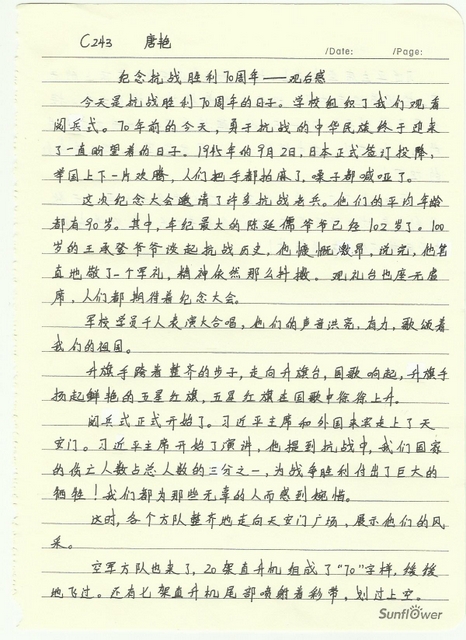 C243 唐艳
/Date: /Page:
纪念抗战胜利70周年——观后感
今天是抗战胜利70周年的日子。学校组织了我们观看
阅兵式。70年前的今天，勇于抗战的中华民族终于迎来
了一直盼望着的日子。1945年的9月2日，日本正式签订投降，
举国上下一片欢腾，人们把手都拍麻了，嗓子都喊哑了。
这次纪念大会邀请了许多抗战老兵。他们的平均年龄
都有90岁。其中，年纪最大的陈廷儒爷爷已经102岁了。100
岁的王承登爷爷谈起抗战历史，他慷慨激昂，说完，他笔
直地敬了一个军礼，精神依然那么抖擞。观礼台也座无虚
席，人们都期待着纪念大会。
军校学员千人表演大合唱，他们的声音洪亮，有力，歌颂着
我们的祖国。
升旗手跨着整齐的步子，走向升旗台，国歌响起，升旗手
扬起鲜艳的五星红旗，五星红旗在国歌中徐徐上升。
阅兵式正式开始了。习近平主席和外国来宾走上了天
安门。习近平主席开始了演讲，他提到抗战中，我们国家
的伤亡人数占总人数的三分之一，为战争胜利付出了巨大的
牺牲！我们都为那些无辜的人而感到惋惜。
这时，各个方队整齐地走向天安门广场，展示他们的风
采。
空军方队也来了，20架直升机组成了“70”字样，缓缓
地飞过。还有七架直升机尾部喷射着彩带，划过上空。
Sunflower